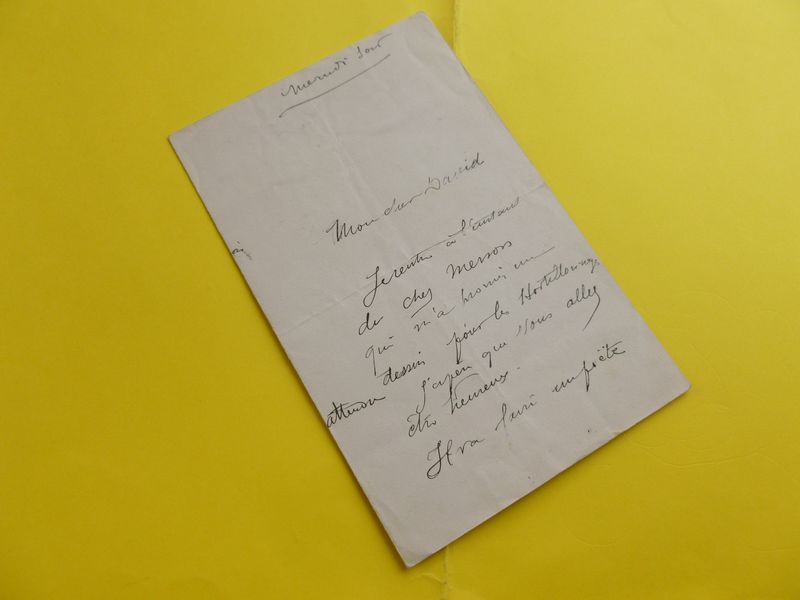 Mercredi soir
Mon cher David
Je rentre à l'instant
de chez Merson
qui m'a promis un
dessin pour les
J'espère que vous allez
être heureux.
Il va faire un poëte